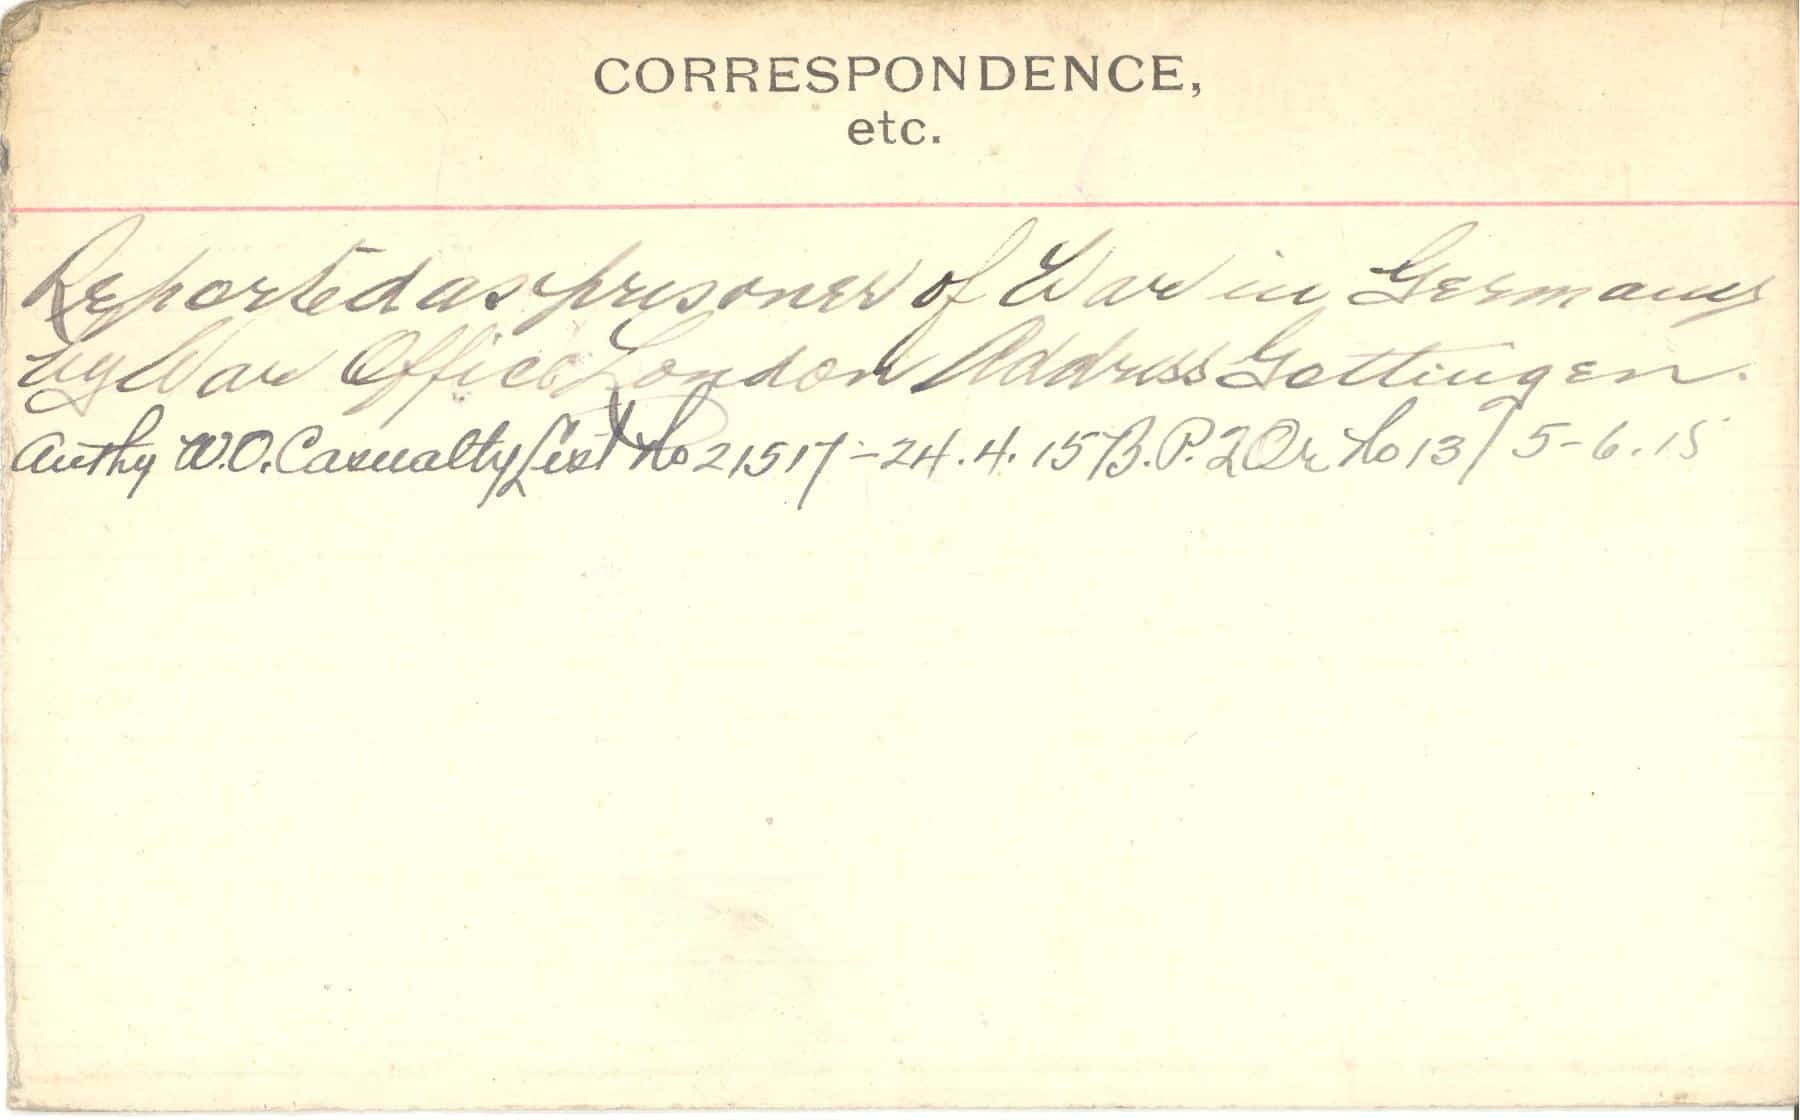 CORRESPONDENCE,
etc.
Reported as prisoner of War in Germany
by War Office London Address Gottingen.
Authy W.O. Casualty List No 21517-24.4.15 B.P. 2 Or No 137 5-6.15